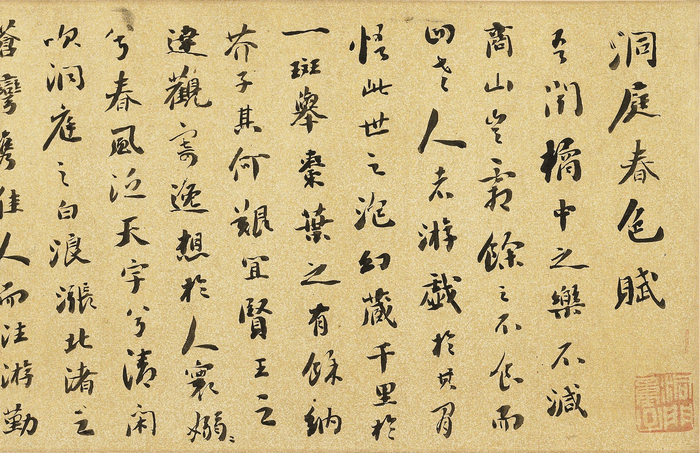 洞庭春色賦
吾聞橘中之樂不減
商山豈霜餘之不食而
四老人者游戲於其間
悟此世之泡幻藏千里於
一斑舉棗葉之有餘納
芥子其何艱宜賢王之
達觀寄逸想於人寰嫋〻
兮春風泛天宇兮清閑
吹洞庭之白浪漲北渚之
蒼彎攜佳人而往游勤